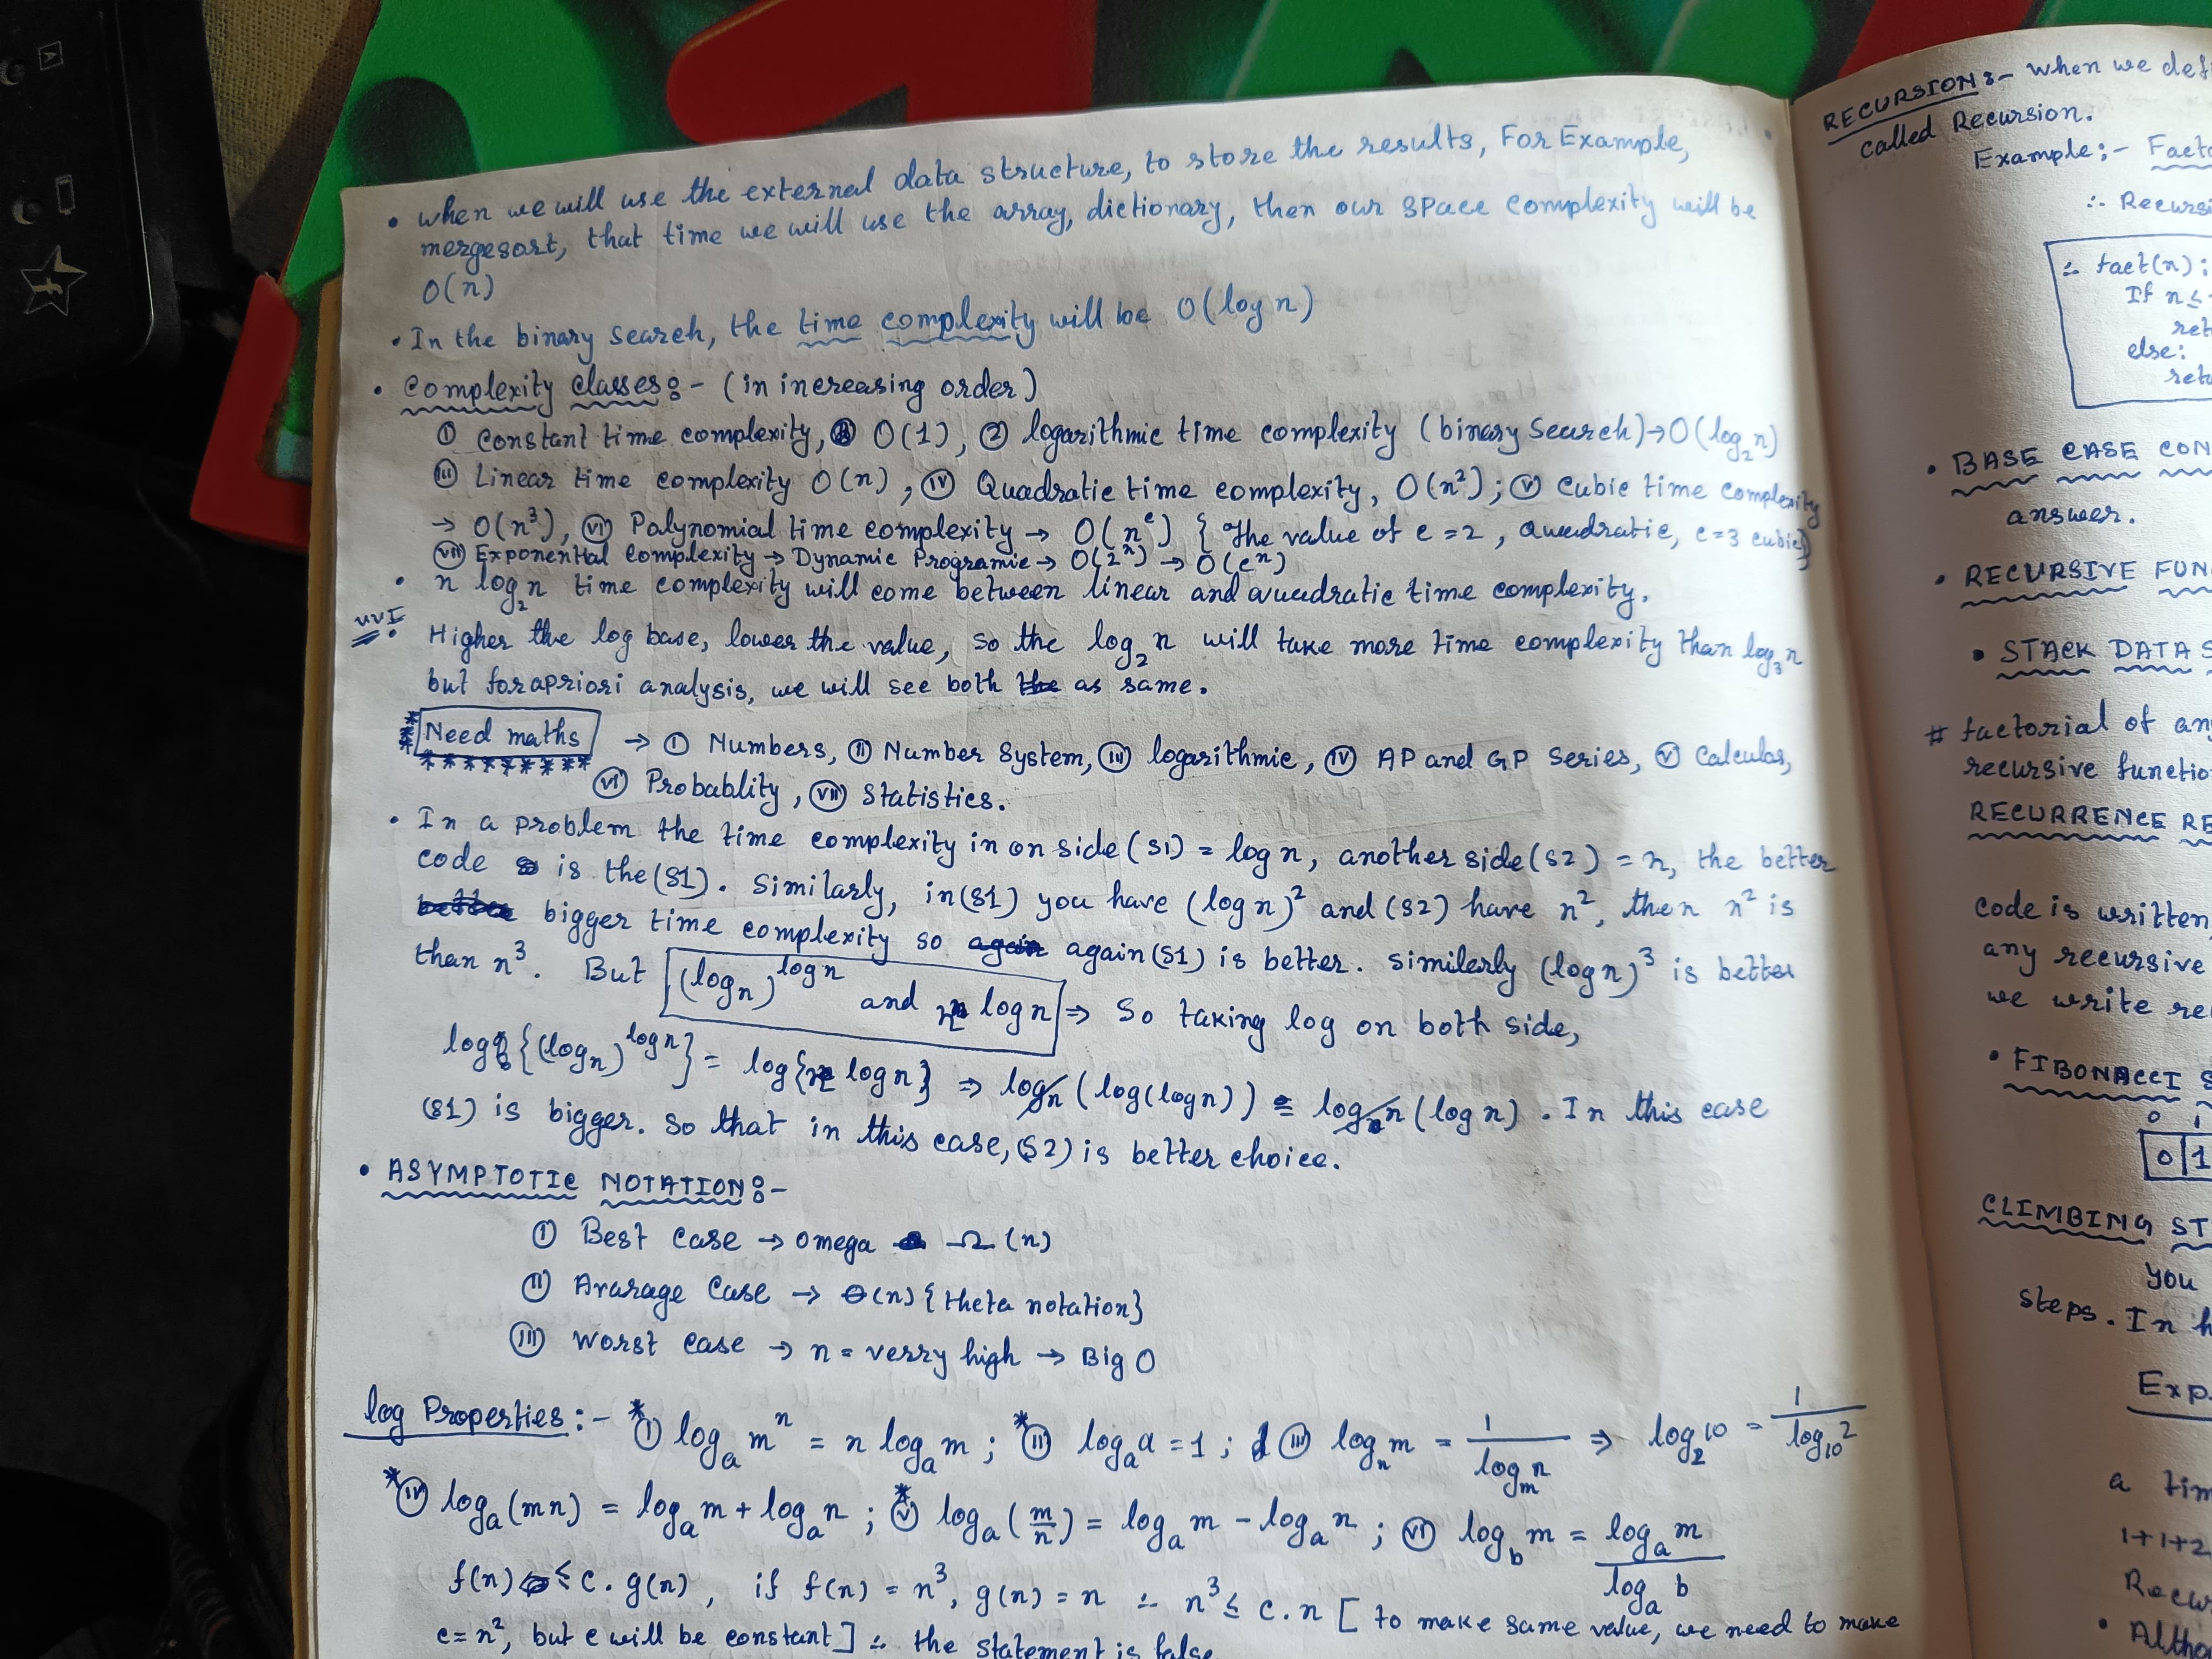 • when we will use the external data structure, to store the results, For Example,
mergesort, that time we will use the array, dictionary, then our space complexity will be
O(n)
• In the binary search, the time complexity will be O(log n)
• Complexity Classes :- (in increasing order)
① Constant time complexity, O(1), ② logarithmic time complexity (binary search) → O(log₂n)
(III) Linear time complexity O(n), (IV) Quadratic time complexity, O(n²); (V) Cubic time complexity
→ O(n³), (VI) Polynomial time complexity → O(n^c) { The value of c = 2, quadratic, c=3 cubic}
(VII) Exponential Complexity → Dynamic Programic → O(2ⁿ) → O(cⁿ)
• n log₂n time complexity will come between linear and quadratic time complexity.
vvI • Higher the log base, lower the value, so the log₂n will take more time complexity than log₃n
but for apriori analysis, we will see both as same.
Need maths → (I) Numbers, (II) Number System, (III) logarithmic, (IV) AP and GP Series, (V) Calculas,
(VI) Probablity, (VII) Statistics.
• In a problem the time complexity in on side (S1) = log n, another side (S2) = n, the better
code is the (S1). Similarly, in (S1) you have (log n)² and (S2) have n², then n² is
bigger time complexity so again (S1) is better. Similerly (log n)³ is better
than n³. But (log n)^log n and n log n ⇒ So taking log on both side,
log {(log n)^log n} = log {n log n} ⇒ log n (log(log n)) = log n (log n). In this case
(S1) is bigger. So that in this case, (S2) is better choice.
• ASYMPTOTIC NOTATION :-
(I) Best Case → omega Ω(n)
(II) Avarage Case → Θ(n) {theta notation}
(III) Worst Case → n = verry high → Big O
log Properties :- * (I) logₐmⁿ = n logₐm ; * (II) logₐa = 1 ; (III) logₙm = 1/logₘn ⇒ log₂10 = 1/log₁₀2
* (IV) logₐ(mn) = logₐm + logₐn ; * (V) logₐ(m/n) = logₐm - logₐn ; (VI) log_b m = logₐm / logₐb
f(n) ≤ c.g(n), if f(n) = n³, g(n) = n ∴ n³ ≤ c.n [ to make same value, we need to make
c = n², but c will be constant ] ∴ the statement is false.
RECURSION :- When we def
called Recursion.
Example :- Facto
∴ Recursi
∴ fact(n) :
If n ≤
ret
else:
retu
• BASE CASE CON
answer.
• RECURSIVE FUN
• STACK DATA S
# factorial of any
recursive functio
RECURRENCE RE
code is written,
any recursive
we write re
• FIBONACCI S
0 1
0 1
CLIMBING ST
You
steps. In h
Exp.
a tim
1+1+2
Recu
• Altho